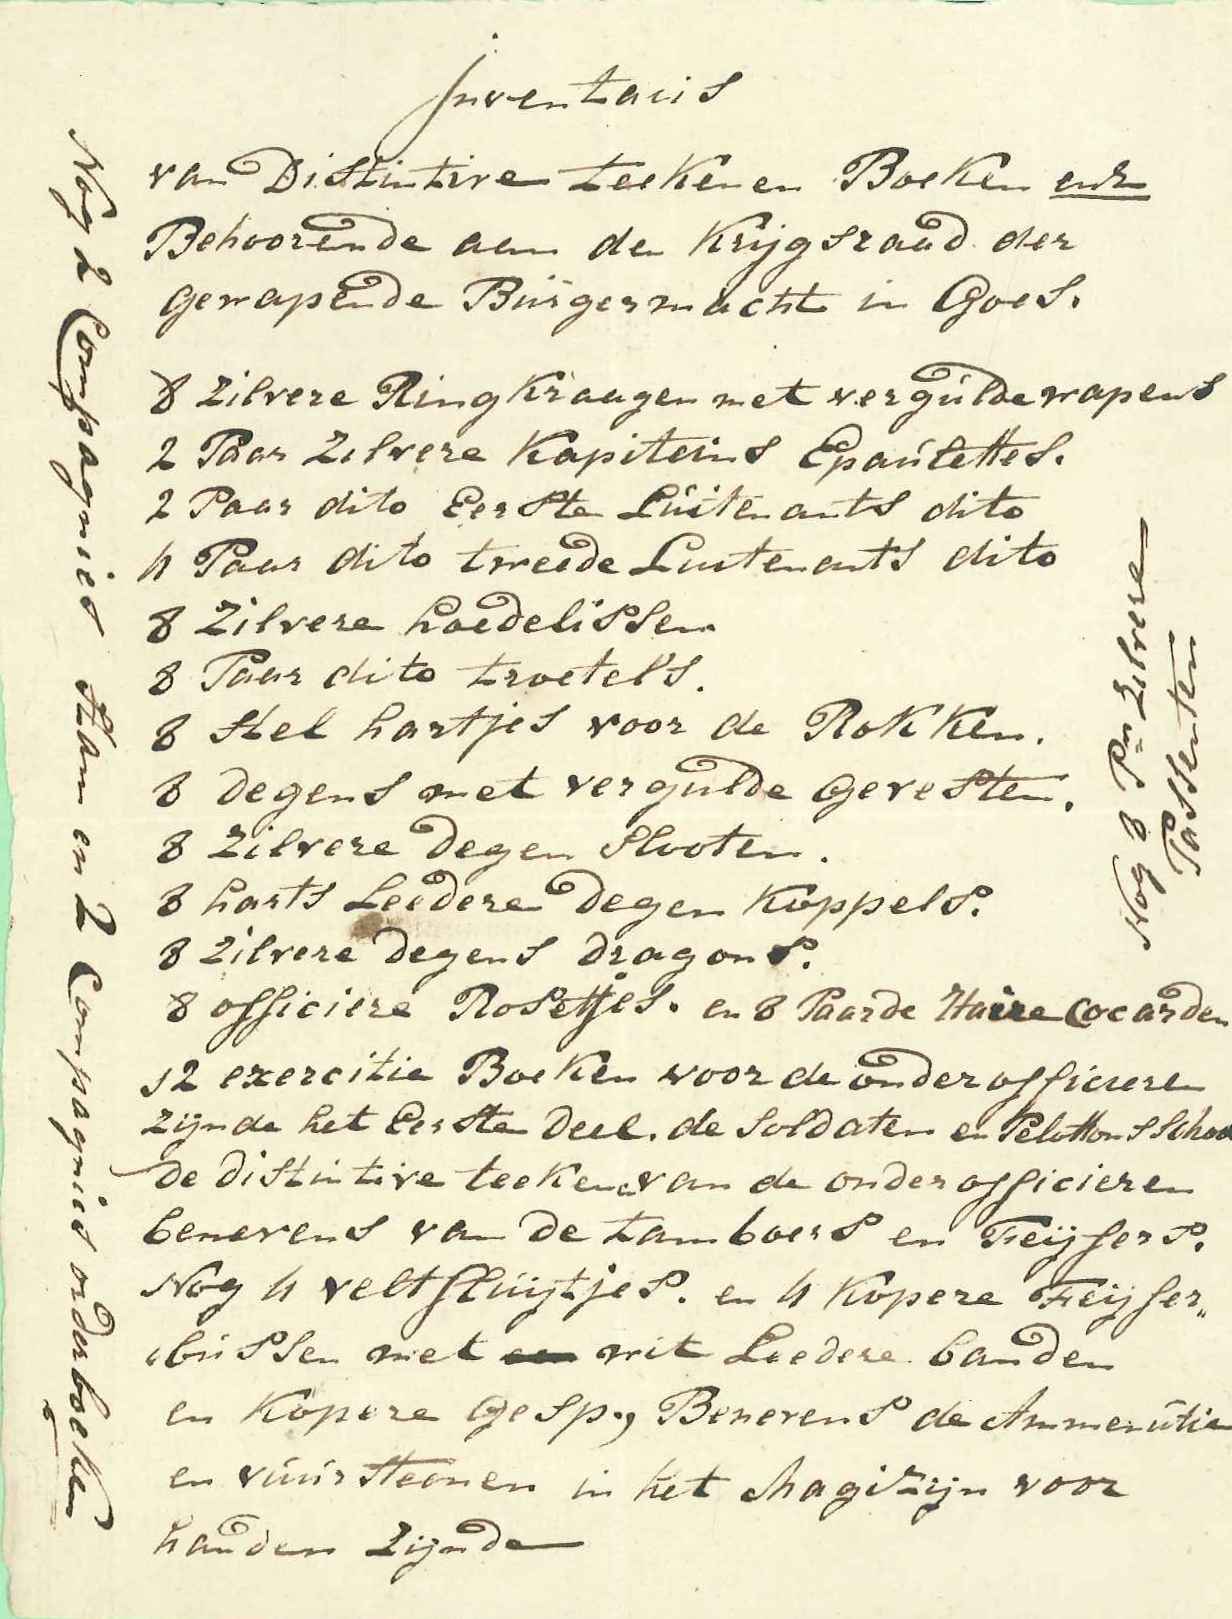 Inventaris
van Distintive teekenen Boeken enz
Behoorende aan de Krijgsraad der
gewapende Burgermacht in Goes.
8 Zilvere Ring Kraagen met vergulde wapens
2 Paar Zilvere Kapiteins Epaulettes.
2 Paar dito Eerste Luitenants dito
4 Paar dito tweede Luitenants dito
8 Zilvere hoedelissen
8 Paar dito troetels.
8 stel hartjes voor de Rokken.
8 degens met vergulde gevesten.
8 Zilvere degen slooten.
8 harts Leedere degen koppels.
8 Zilvere degens dragons.
8 officiere Rosettjes. en 8 Paarde Haire Cocarden
12 exercitie Boeken voor de onderofficieren
zijnde het Eerste deel. de soldaten en Pelottons School
de distintive teekens van de onderofficieren
benevens van de tamboers en Feijfers.
Nog 4 veltfluijtjes. en 4 Kopere Feijfer„
„bussen met een wit Leedere banden
en Kopere gesp, Benevens de Ammenutie
en vuursteenen in het Magizijn voor
handen zijnde
Nog 8 Pn Zilvere
Passenten
Nog 2 Compagnies Stam en 2 Compagnies orderboeken